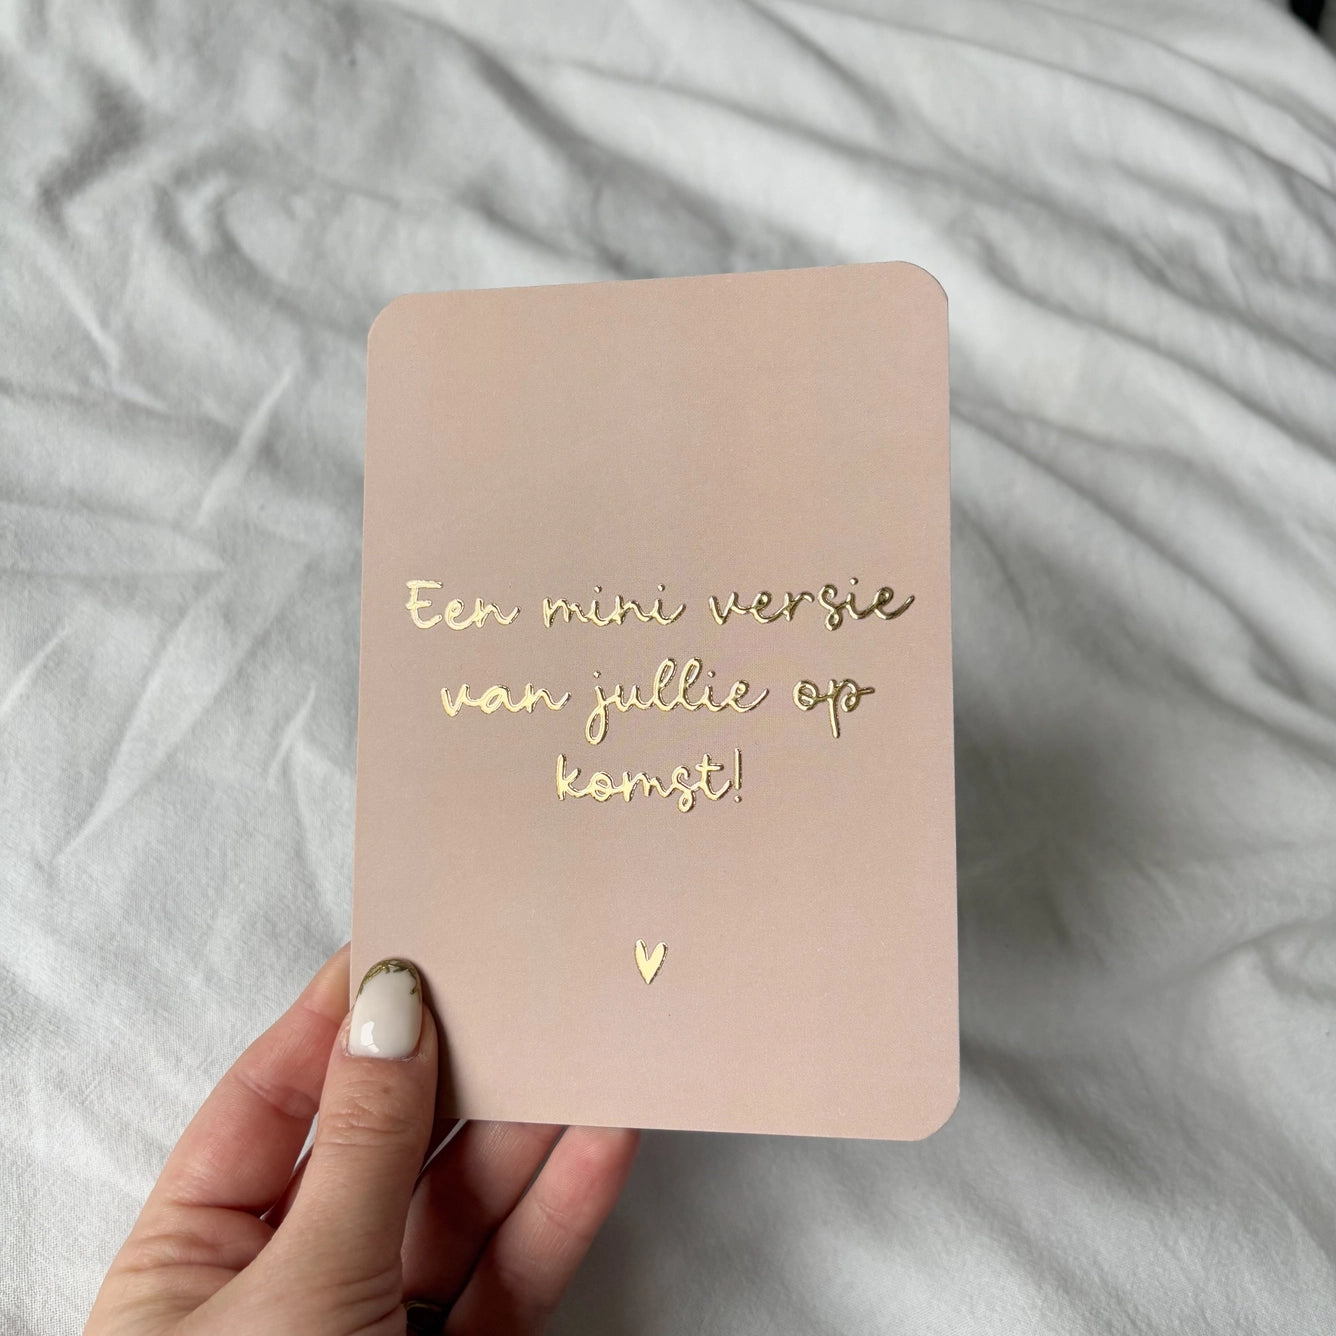 Een mini versie
van jullie op
komst!